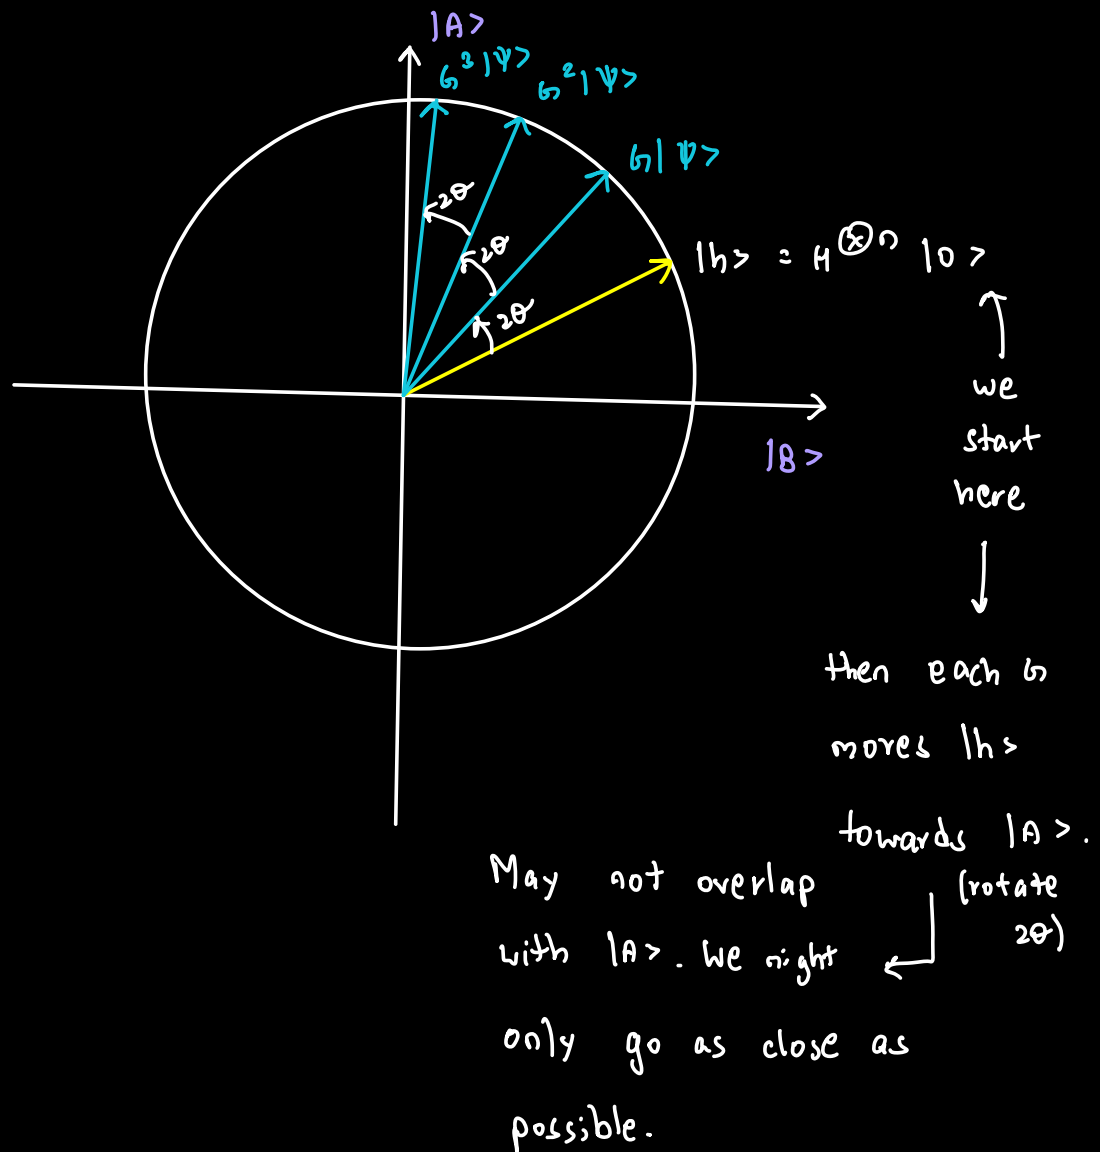 |A>
G³|Ψ>
G²|Ψ>
G|Ψ>
2θ
2θ
2θ
|h> = H^⊗n |0>
we
start
here
|B>
then each G
moves |h>
towards |A>.
(rotate
2θ)
May not overlap
with |A>. We might
only go as close as
possible.